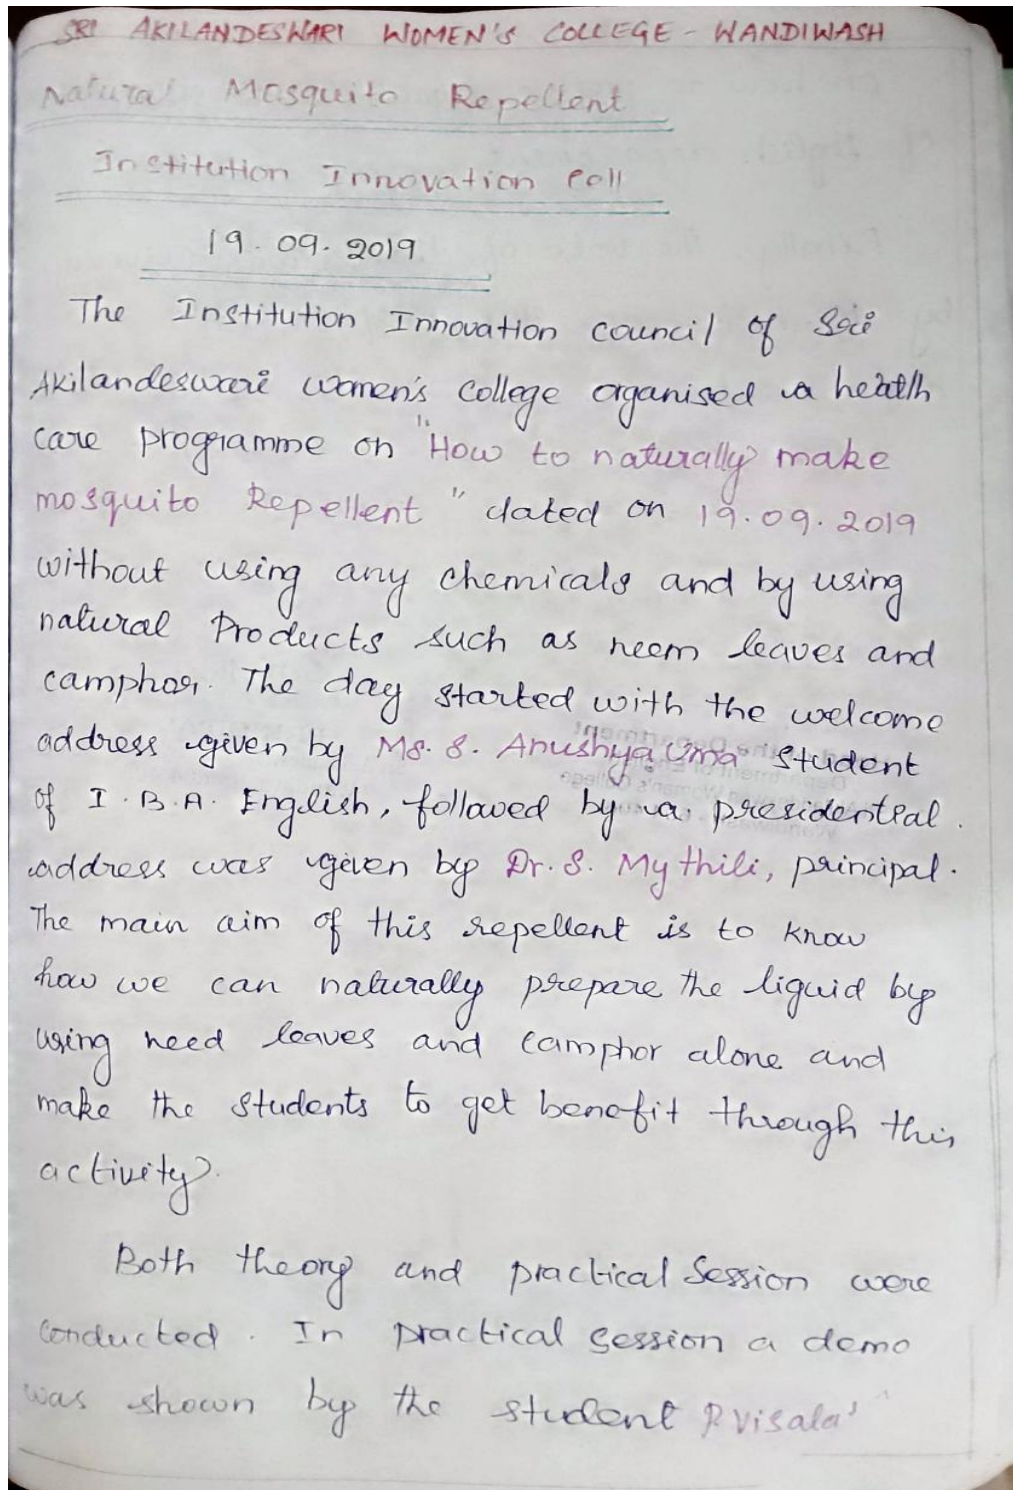 SRI AKILANDESWARI WOMEN'S COLLEGE - WANDIWASH
Natural Mosquito Repellent
Institution Innovation Cell
19.09.2019
The Institution Innovation council of Sri
Akilandeswari women's College organised a health
care programme on "How to naturally make
mosquito Repellent" dated on 19.09.2019
without using any chemicals and by using
natural Products such as neem leaves and
camphor. The day started with the welcome
address given by Ms. S. Anushya Uma student
of I.B.A. English, followed by a presidential
address was given by Dr. S. Mythili, principal.
The main aim of this repellent is to know
how we can naturally prepare the liquid by
using need leaves and camphor alone and
make the students to get benefit through this
activity.
Both theory and practical Session were
conducted. In practical session a demo
was shown by the student